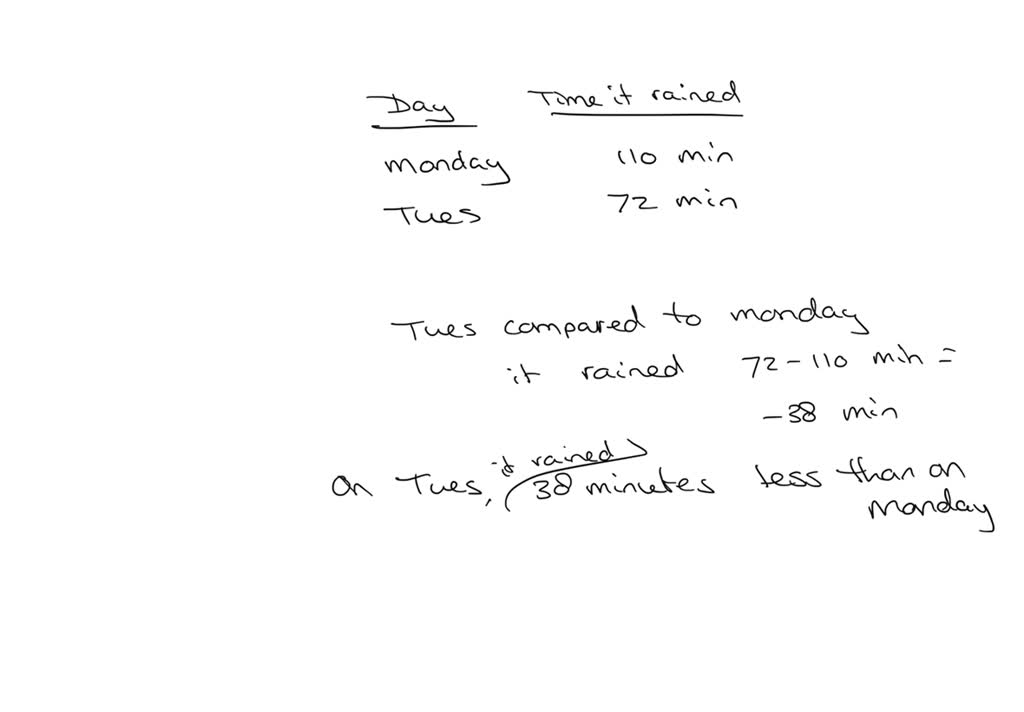 Day Time it rained
monday 110 min
Tues 72 min
Tues compared to monday
it rained 72 - 110 min =
- 38 min
it rained
on Tues, 38 minutes less than on
monday